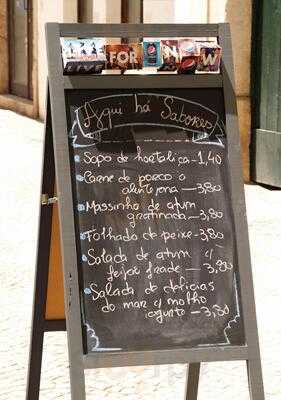 FOR NOW
Aqui há Sabores
Sopa de hortaliça - 1,40
Carne de porco à
alentejana - 3,80
Massinha de atum
gratinada - 3,80
Folhado de peixe - 3,80
Salada de atum c/
feijão frade - 3,80
Salada de delicias
do mar c/ molho
iogurte - 3,80